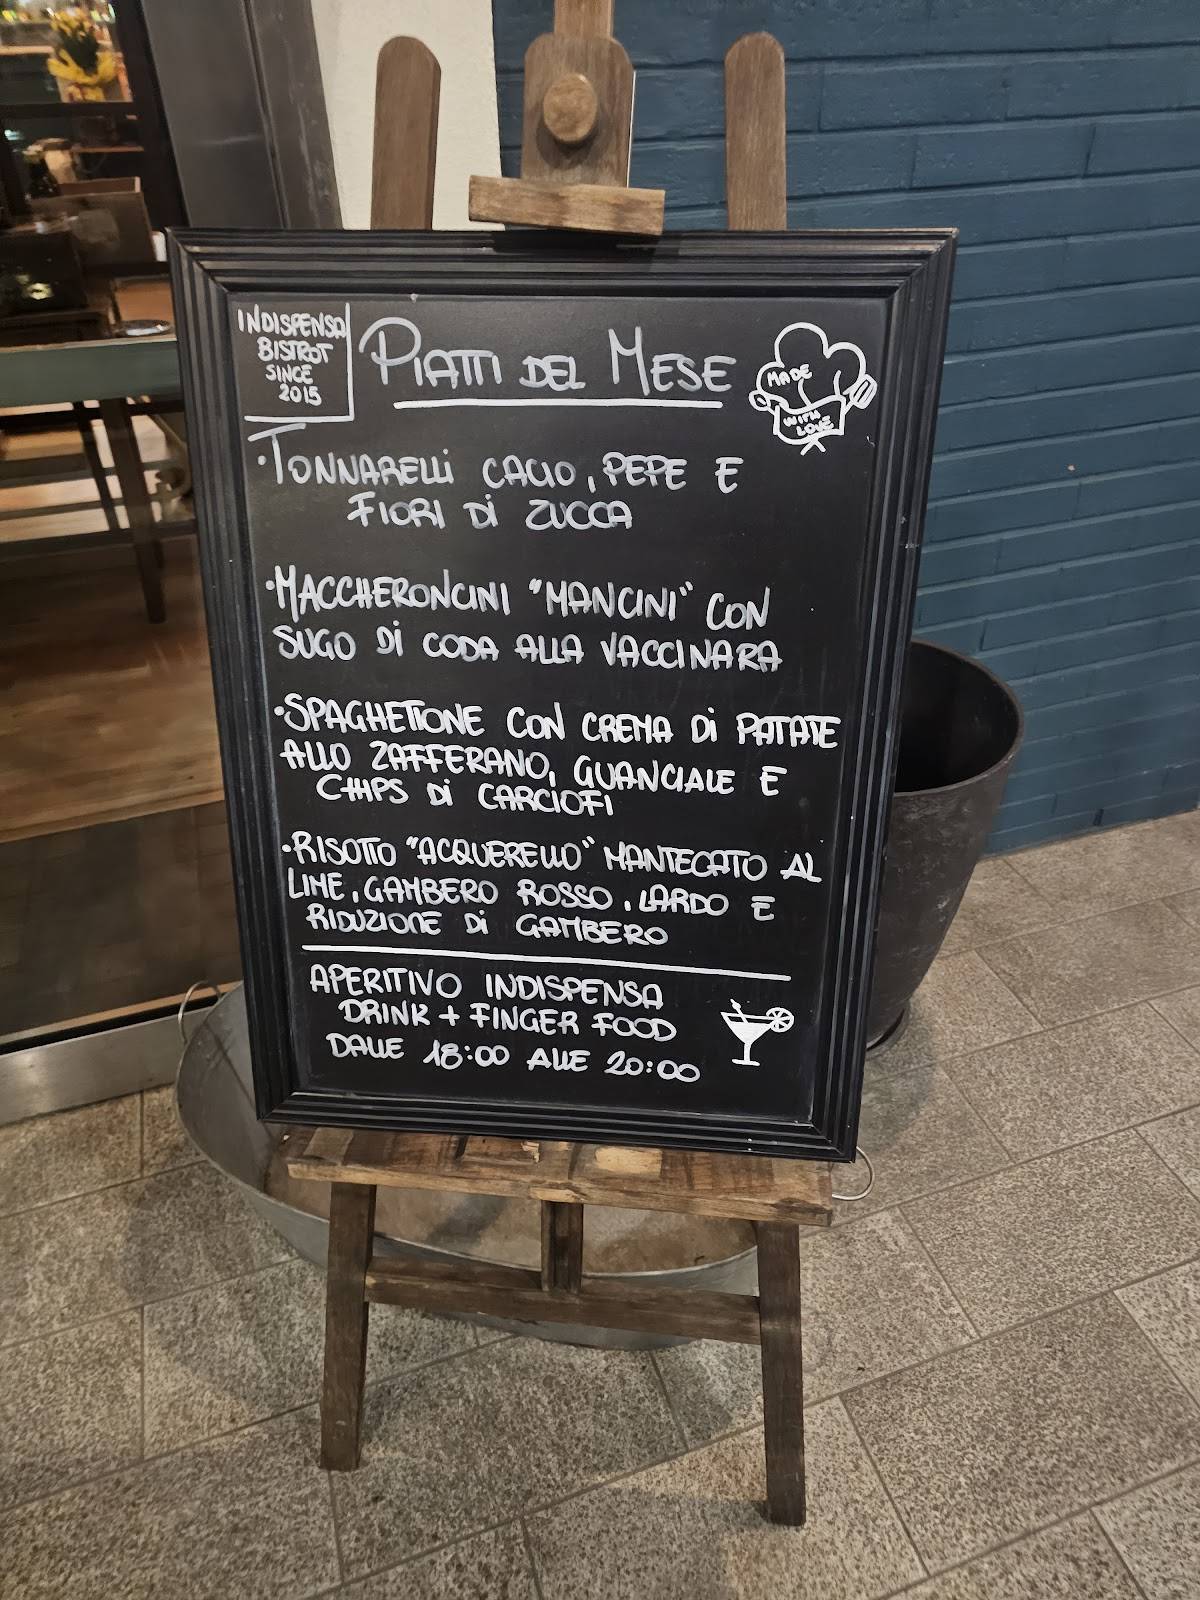 INDISPENSA
BISTROT
SINCE
2015
PIATTI DEL MESE
MADE
WITH
LOVE
•TONNARELLI CACIO, PEPE E
FIORI DI ZUCCA
•MACCHERONCINI "MANCINI" CON
SUGO DI CODA ALLA VACCINARA
•SPAGHETTONE CON CREMA DI PATATE
ALLO ZAFFERANO, GUANCIALE E
CHIPS DI CARCIOFI
•RISOTTO "ACQUERELLO" MANTECATO AL
LIME, GAMBERO ROSSO, LARDO E
RIDUZIONE DI GAMBERO
APERITIVO INDISPENSA
DRINK + FINGER FOOD
DALLE 18:00 ALLE 20:00